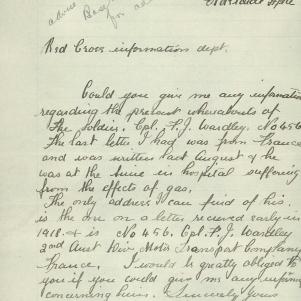 advise Base
for ad
Adelaide
Red Cross information dept.
Could you give me any infamation
regarding the present whereabouts of
The Soldier. Cpl. F. J. Wardley. No 456
The last letter I had was from France
and was written last August & he
was at the time in hospital suffering
from the effects of gas.
The only address I can find of his
is the one on a letter recieved early in
1918 & is No 456. Cpl. F. J. Wardley
2nd Aust Div Motor Transport Company
France. I would be greatly obliged to
you if you could give me any inform
concerning him. Sincerely Yours